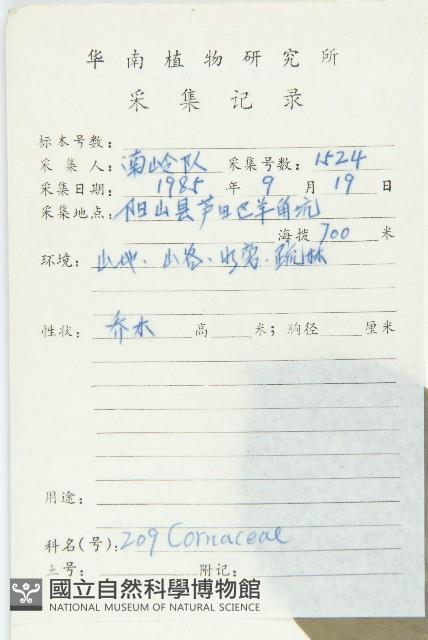 华南植物研究所
采集记录
标本号数：
采集人：南岭队 采集号数：1524
采集日期：1985年9月19日
采集地点：阳山县芦田巴羊角坑
海拨700米
环境：山地、山谷、水旁、疏林
性状：乔木 高 米；胸径 厘米
用途：
科名(号)：209 Cornaceae
土号： 附记：
國立自然科學博物館
NATIONAL MUSEUM OF NATURAL SCIENCE